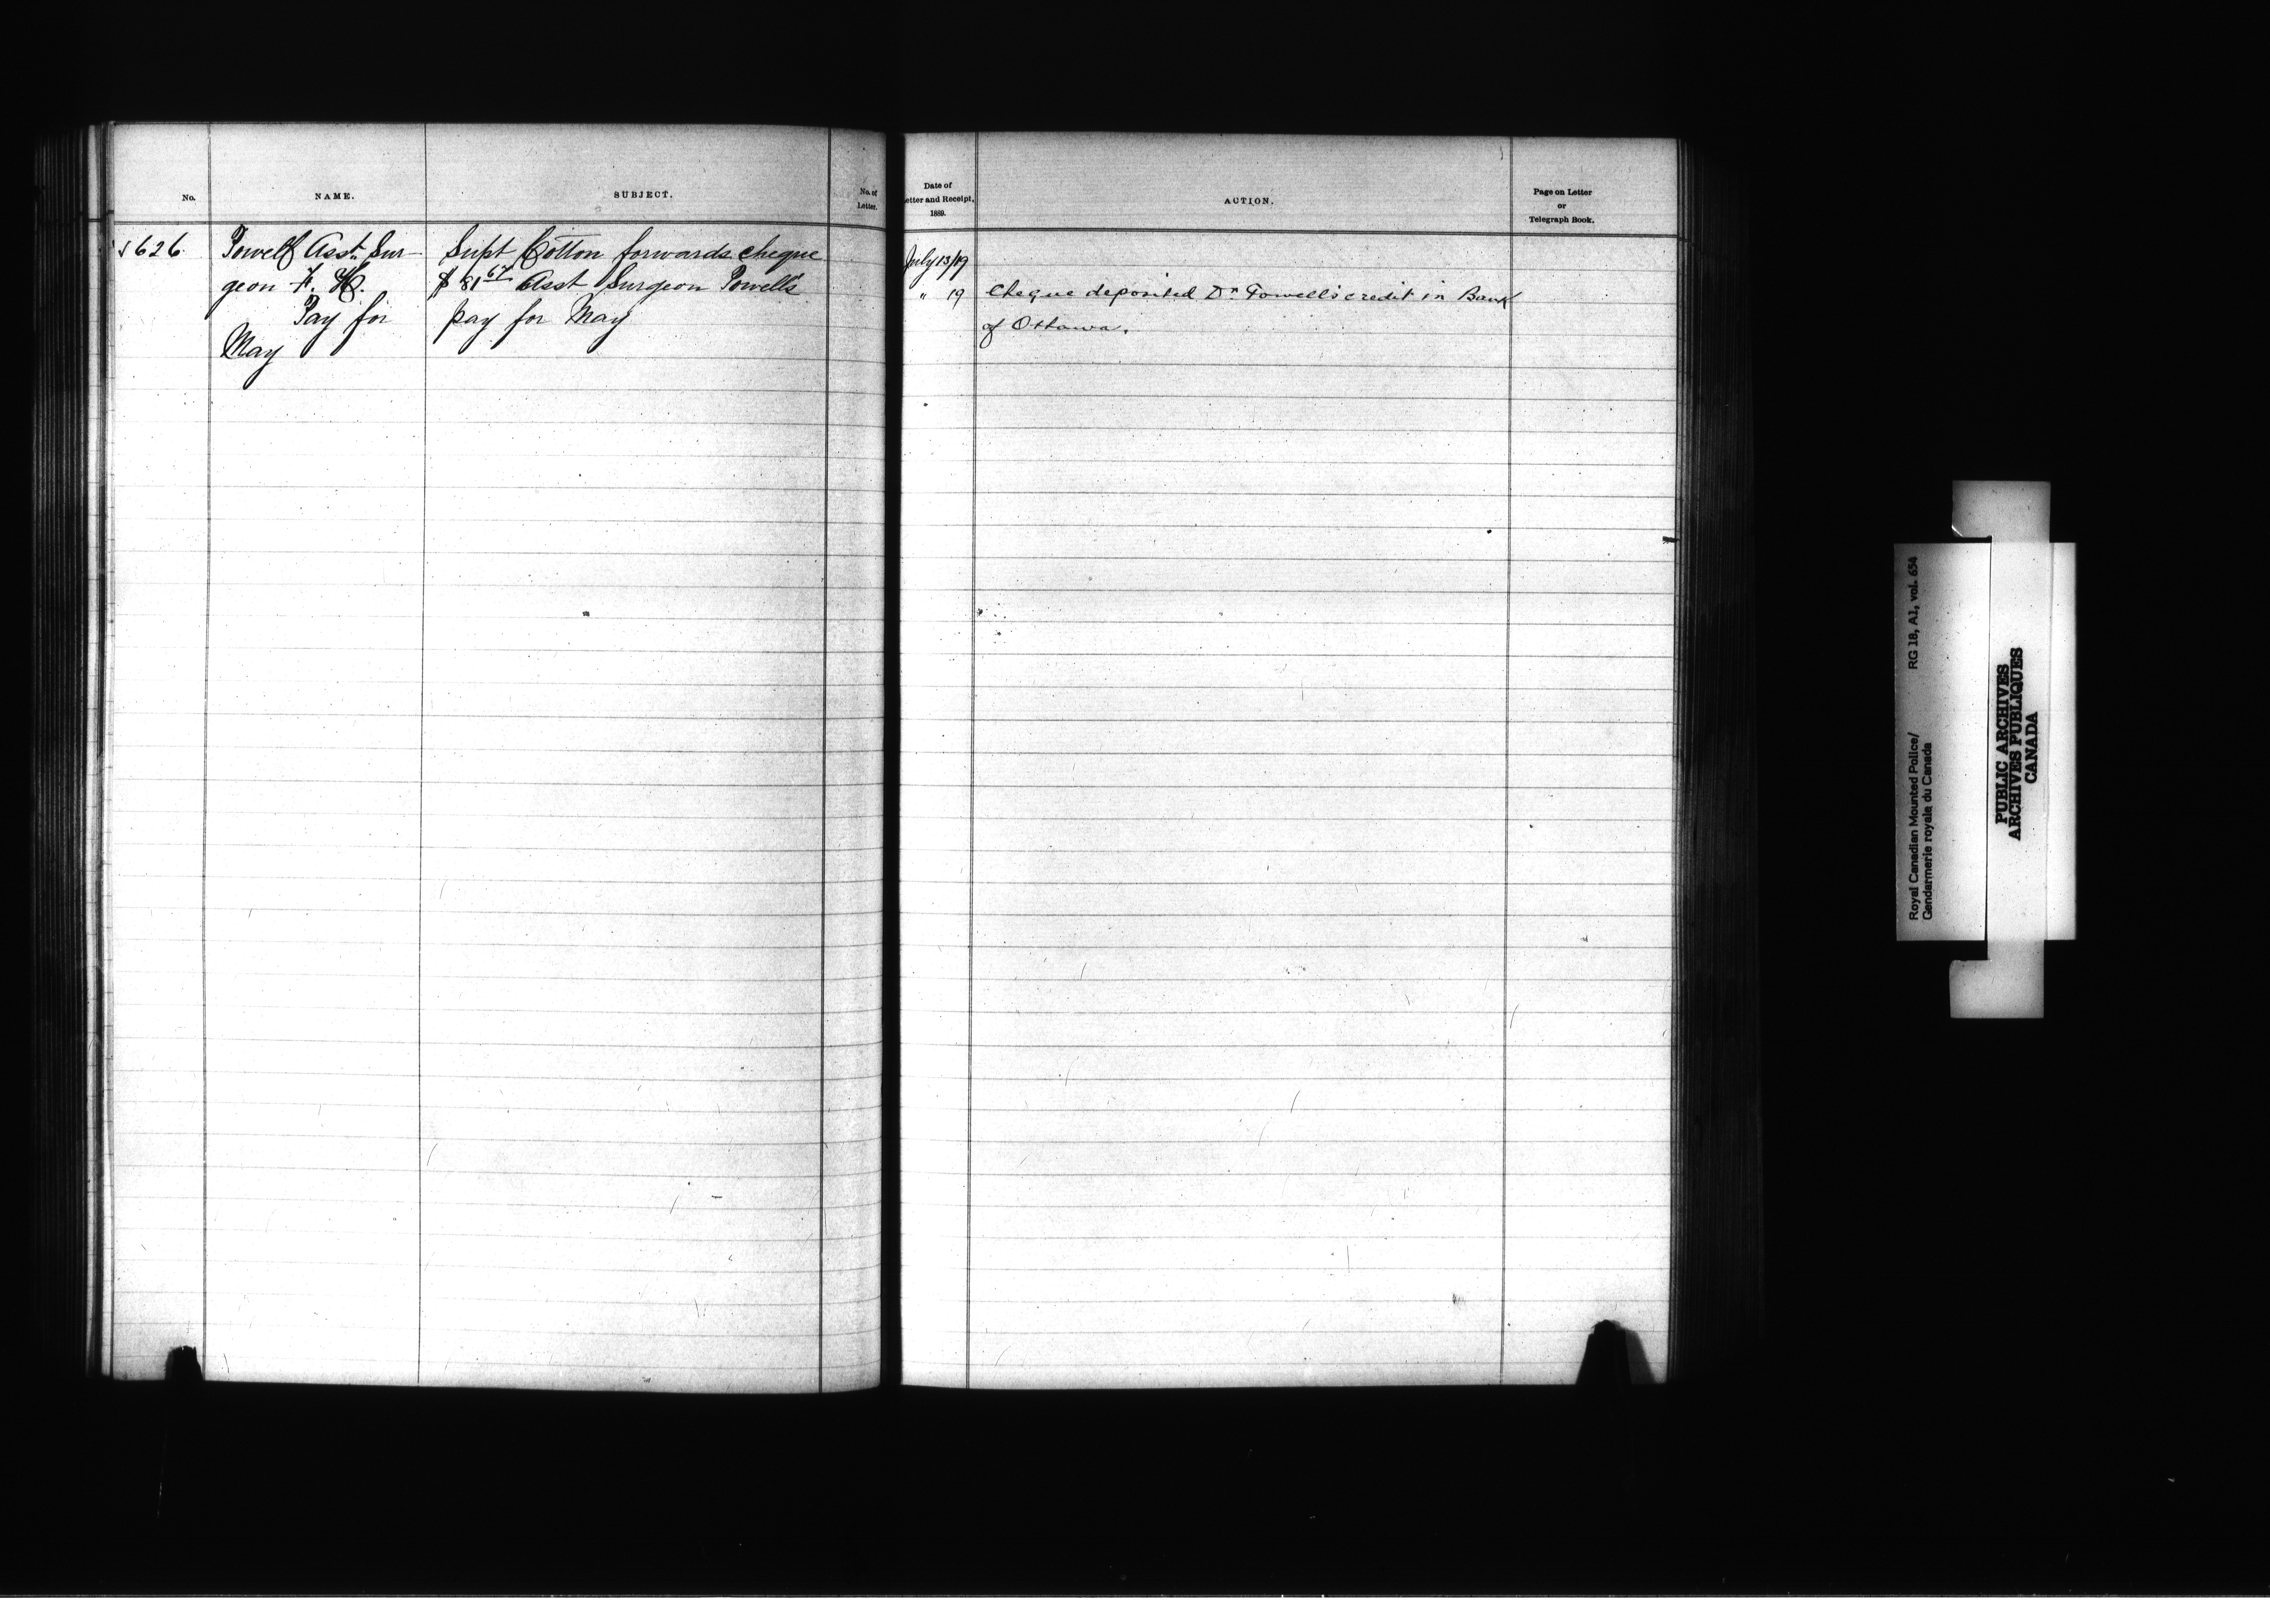 No.
NAME.
SUBJECT.
No. of
Letter.
626
Powell Asst. Sur-
geon F. H.
Pay for
May
Supt Cotton forwards cheque
$81 67 Asst Surgeon Powell's
pay for May
Date of
etter and Receipt,
1889.
ACTION.
Page on Letter
or
Telegraph Book.
July 13/19
" 19 Cheque deposited Dr. Powell's credit in Bank
of Ottawa.
Royal Canadian Mounted Police/ RG 18, A1, vol. 654
Gendarmerie royale du Canada
PUBLIC ARCHIVES
ARCHIVES PUBLIQUES
CANADA